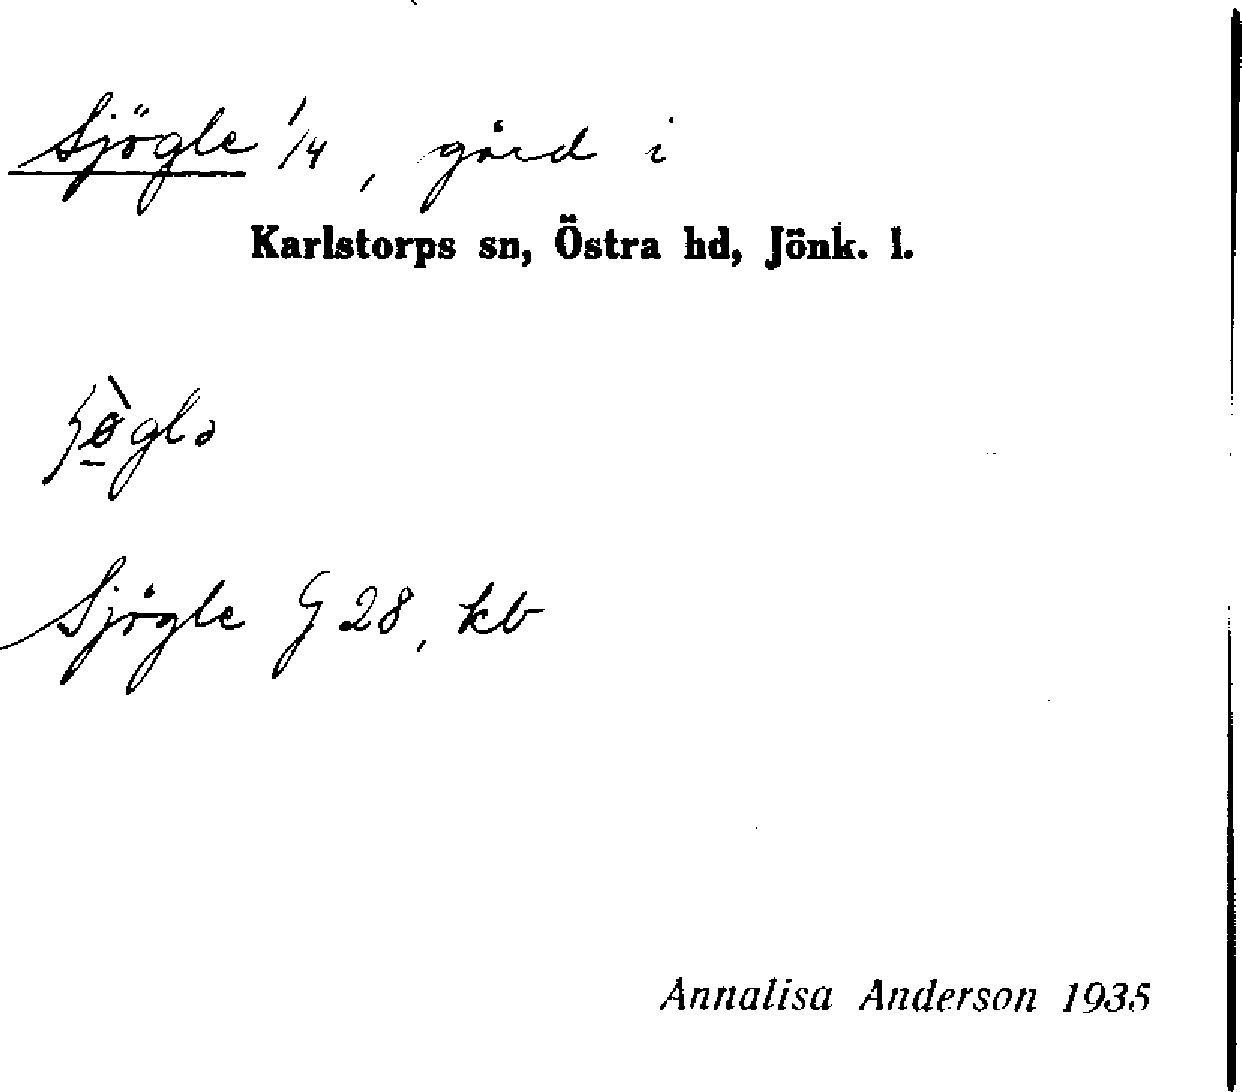 Sjögle 1/4, gård i
Karlstorps sn, Östra hd, Jönk. l.
Sjögle G 28, kb
Annalisa Anderson 1935